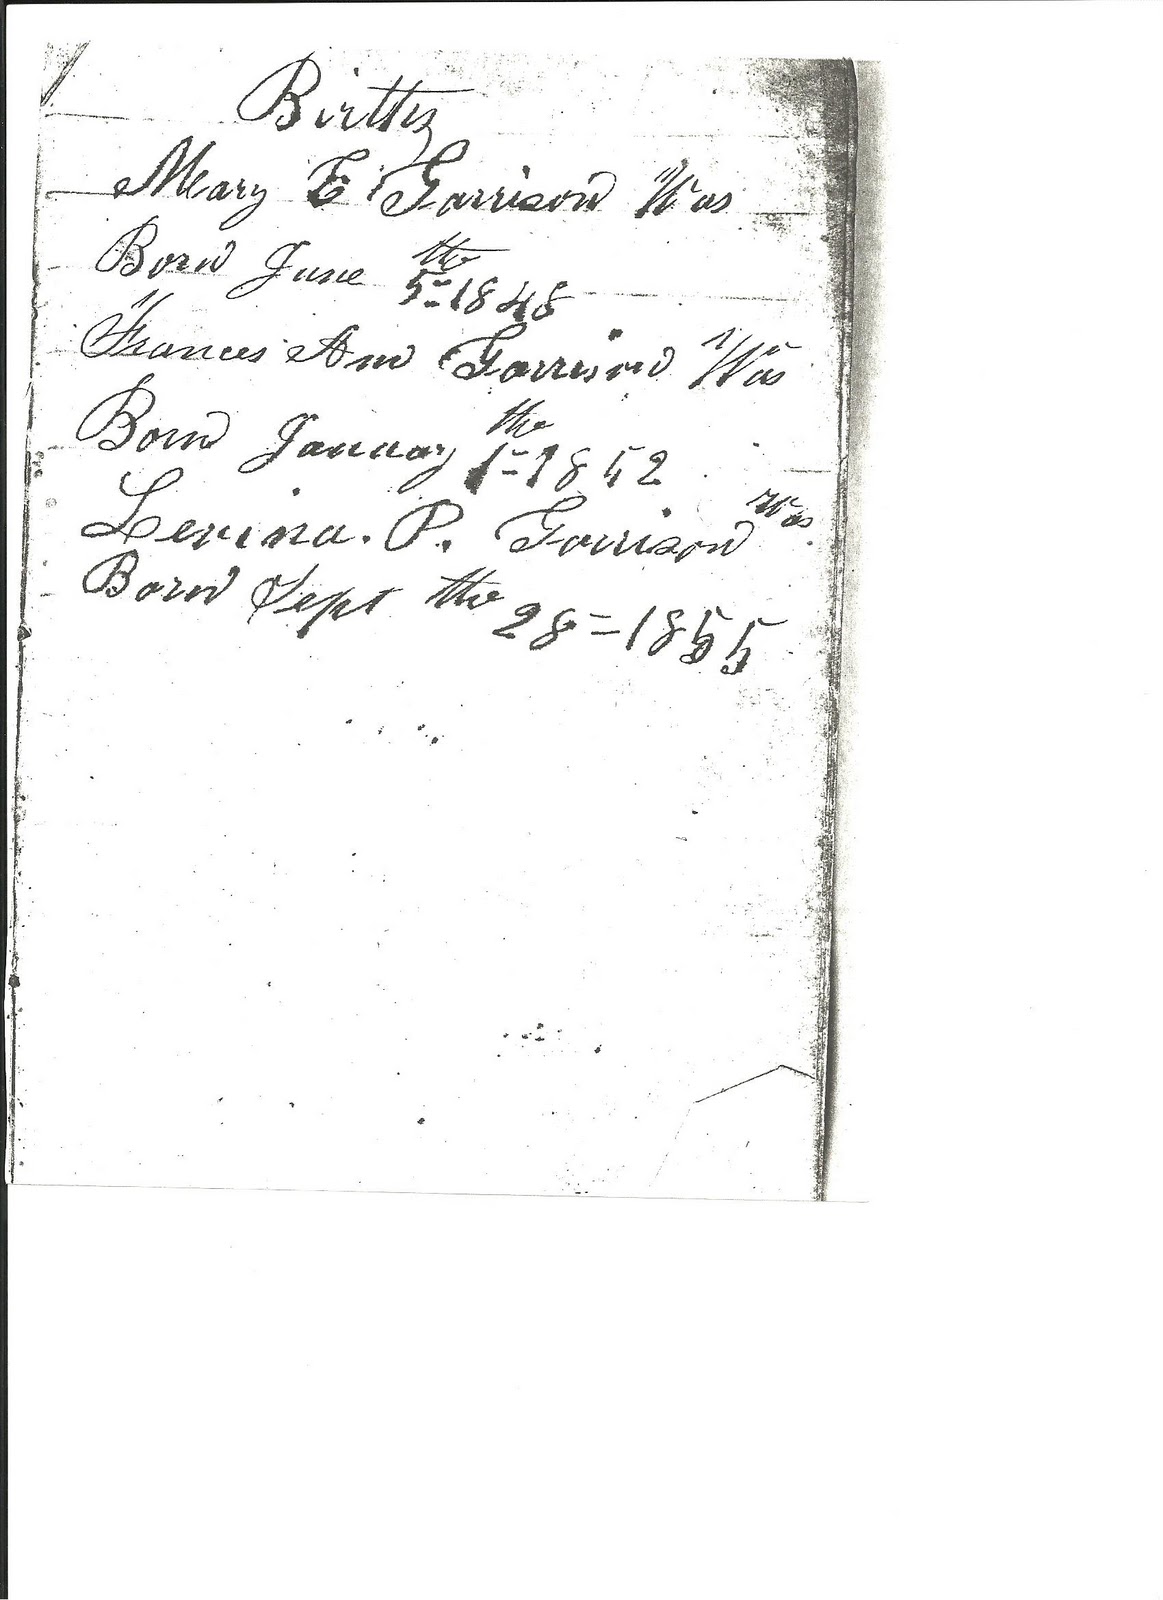 Births
Mary E Garrison Was
Born June the 5=1848
Frances Ann Garrison Was
Born January the 1=1852
Levina. P. Garrison Was
Born Sept the 28=1855